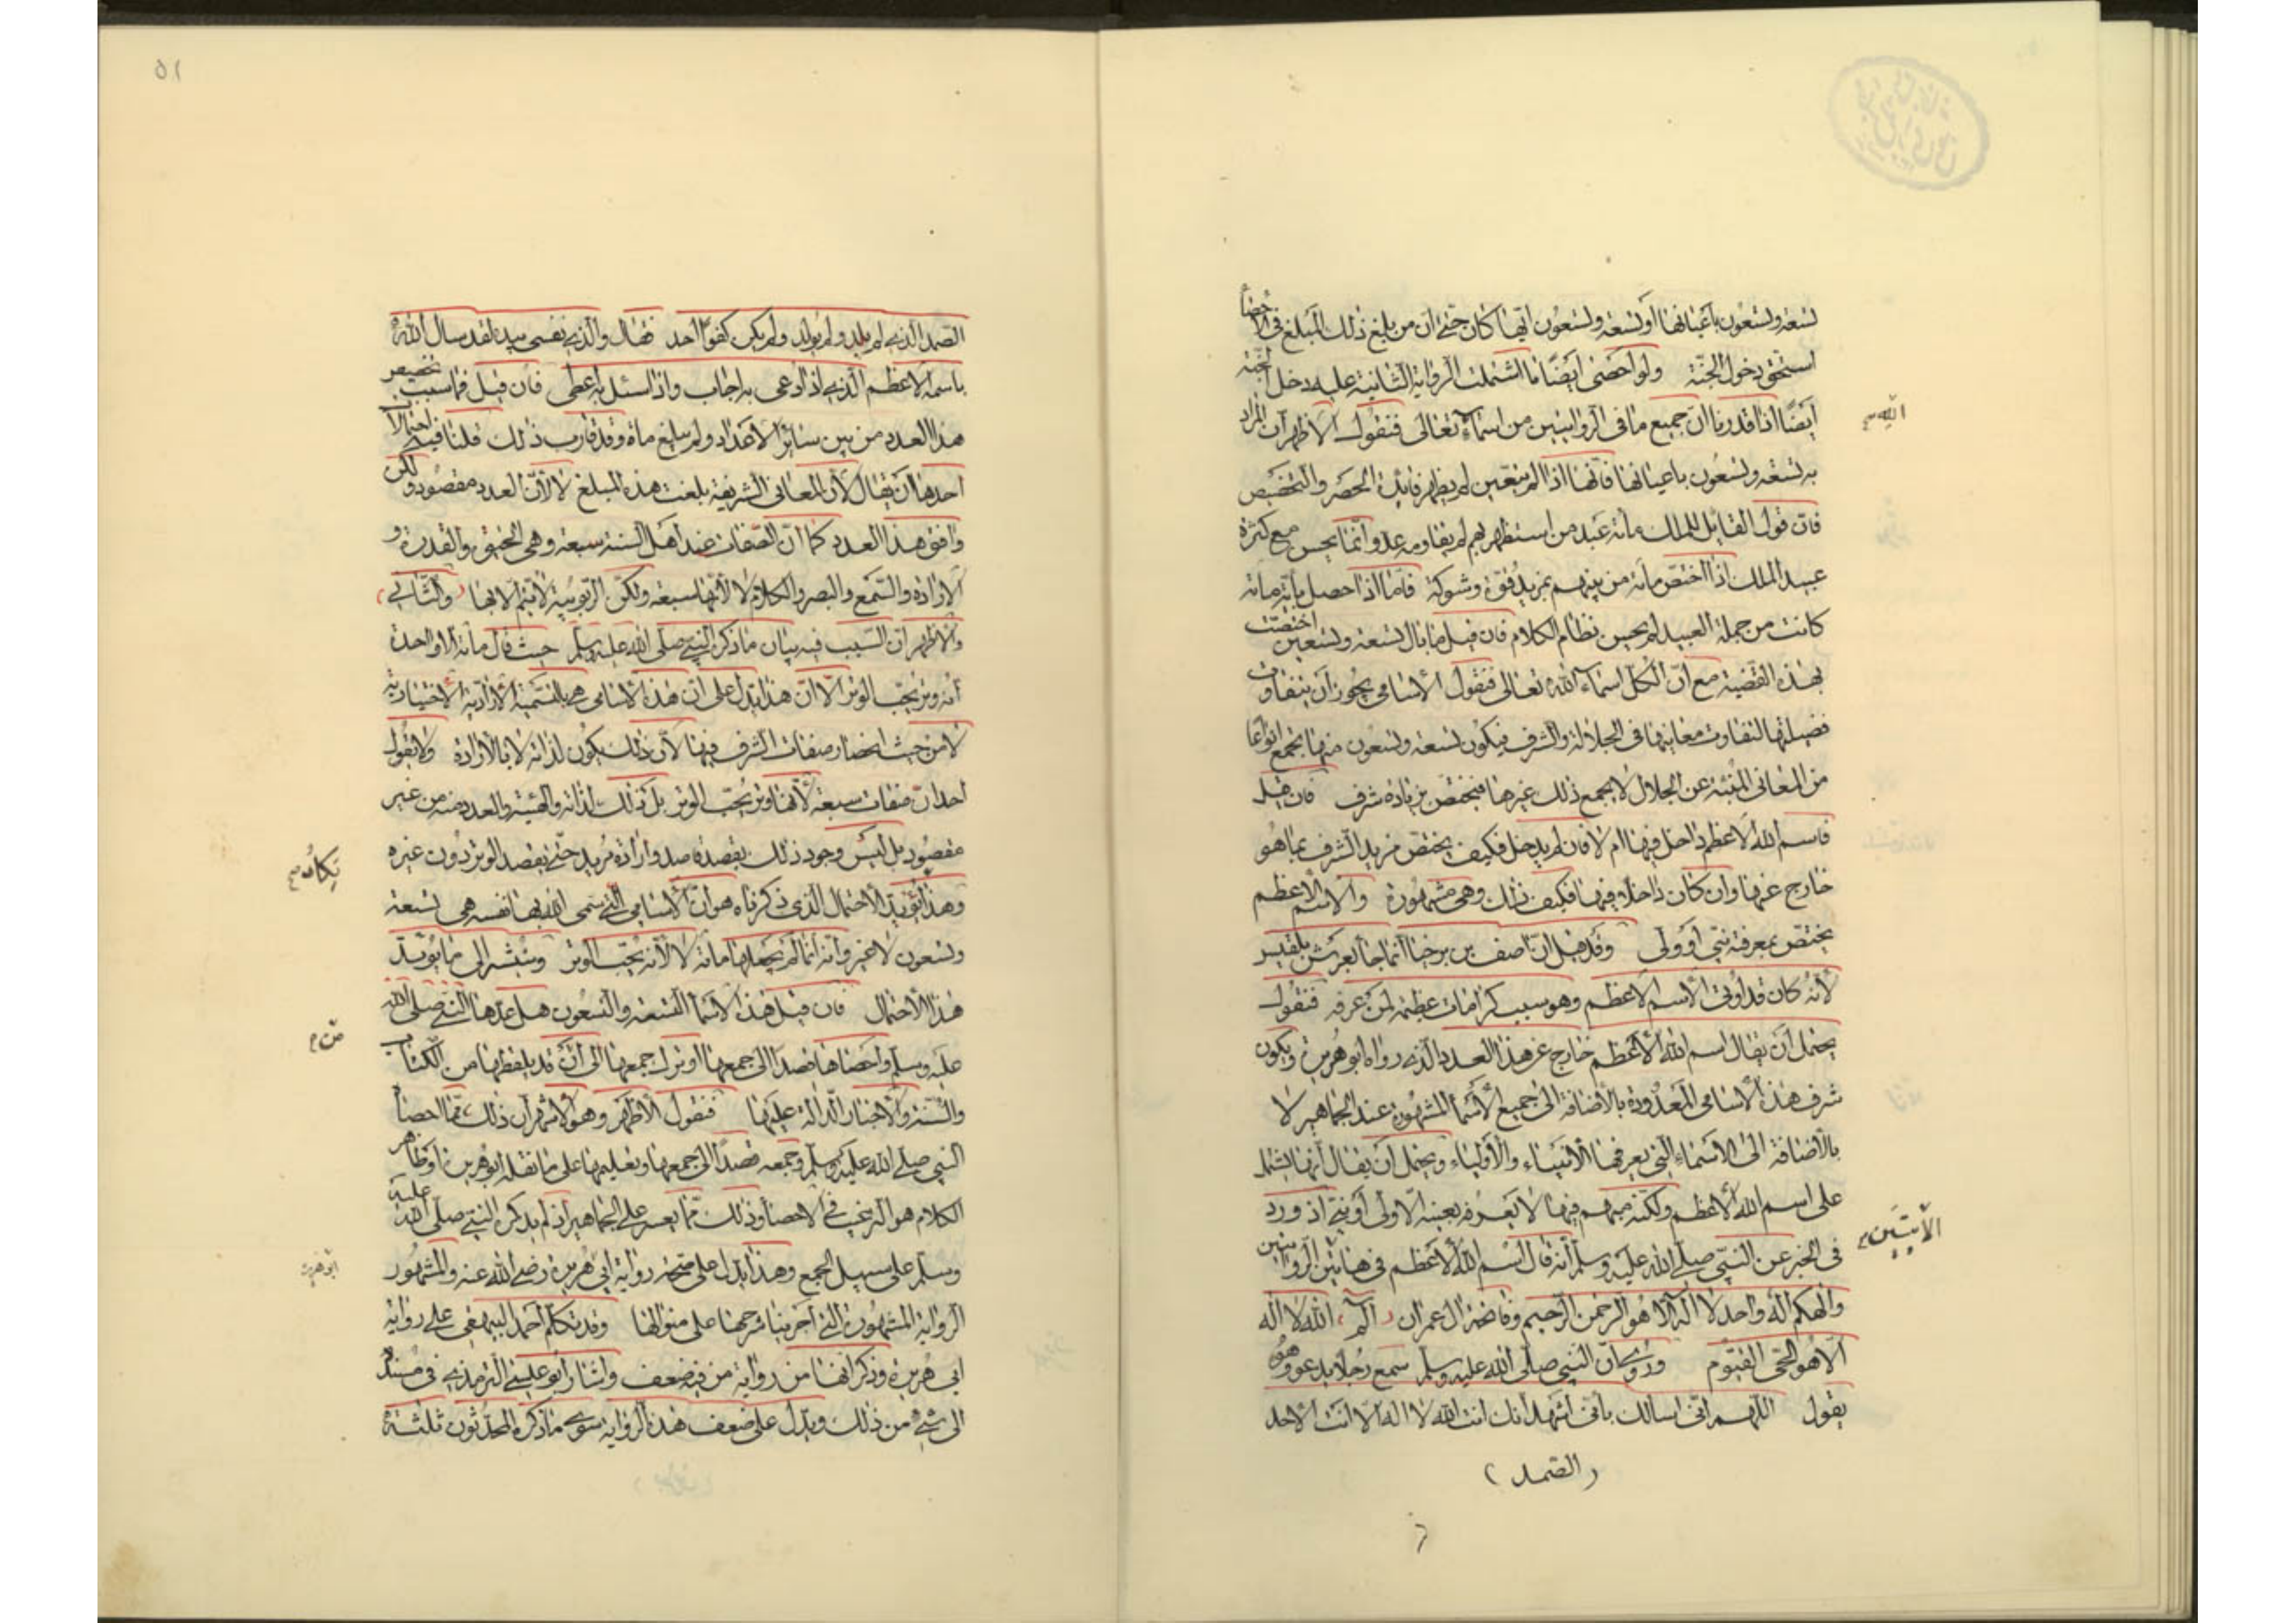 تسعة وتسعون باعيانها او تسعة وتسعون ايّها كان حتى ان من بلغ ذلك المبلغ فى الاحصاء
استحق دخول الجنّة ولو احصى ايضًا ما اشتملت الرواية الثانية عليه دخل الجنّة
ايضًا اذا قدرنا ان جميع ما فى الروايتين من اسماء تعالى فنقول الاظهر ان المراد
الله
به تسعة وتسعون باعيانها فانها اذا لم يتعين لم يظهر فائدة الحصر والتخصيص
فان قول القائل للملك مائة عبد من استظهر بهم لم يقاومه عدو انّما يحسن مع كثرة
عبيد الملك اذا اختص مائة من بينهم بمزيد قوة وشوكة فامّا اذا حصل باية مائة
كانت من جملة العبيد لم يحسن نظام الكلام فان قيل ما بال تسعة وتسعين اختصت
بهذه القضية مع ان الكل اسماء الله تعالى فنقول الاسامى يجوز ان يتفاوت
فضيلتها لتفاوت معانيها فى الجلالة والشرف فيكون تسعة وتسعون منها يجمع انواعا
من المعانى المنبئة عن الجلال لا يجمع ذلك غيرها فيختص بزيادة شرف فان قيل
فاسم الله الاعظم داخل فيها ام لا فان لم يدخل فكيف يختص مزيد الشرف بما هو
خارج عنها وان كان داخلا فيها فكيف ذلك وهى مشهورة والاسم الاعظم
يختص بمعرفة نبى او ولى وقد قيل ان اصف بن برخيا انما جا بعرش بلقيس
لانه كان قد اوتى الاسم الاعظم وهو سبب كرامات عظيمة لمن عرفه فنقول
يحتمل ان يقال اسم الله الاعظم خارج عن هذا العدد الذى رواه ابو هريرة ويكون
شرف هذه الاسامى المعدودة بالاضافة الى جميع الاسماء المشهورة عند الجماهير لا
بالاضافة الى الاسماء التى يعرفها الانبياء والاولياء ويحتمل ان يقال انها يشتمل
على اسم الله الاعظم ولكنه مبهم فيها لا يعرفه بعينه الا ولى او نبى اذ ورد
فى الخبر عن النبى صلى الله عليه وسلم انه قال اسم الله الاعظم فى هاتين الروايتين
الايتين
والهكم اله واحد لا اله الا هو الرحمن الرحيم وفاتحة ال عمران الم الله لا اله
الا هو الحى القيوم وروى ان النبى صلى الله عليه وسلم سمع رجلا يدعو وهو
يقول اللهم انى اسالك بانى اشهد انك انت الله لا اله الا انت الاحد
(الصمد)
٥١
الصمد الذى لم يلد ولم يولد ولم يكن كفوا احد فقال والذى نفسى بيده لقد سال الله
باسمه الاعظم الذى اذا دعى به اجاب واذا سئل به اعطى فان قيل فما سبب تخصيص
هذا العدد من بين سائر الاعداد ولم يبلغ مائة وقد قارب ذلك قلنا فيه احتمالان
احدها ان يقال لان المعانى الشريفة بلغت هذه المبلغ لا لان العدد مقصود ولكن
وافق هذا العدد كما ان الصفات عند اهل السنة سبعة وهى الحيوة والقدرة و
الارادة والسمع والبصر والكلام لا لانها سبعة ولكن الربوبية لا يتم الا بها والثانى
والاظهر ان السبب فيه بيان ما ذكره النبى صلى الله عليه وسلم حيث قال مائة الا واحدة
انه وتر يحب الوتر الا ان هذا يدل على ان هذه الاسامى هى بالتسمية الارادية الاختيارية
لا من حيث انحصار صفات الشرف فيها لان ذلك يكون لذاته لا بالارادة ولا يقول
احد ان صفات سبعة لانها وتر يحب الوتر بل ذلك لذاته والعدد منه من غير
مقصود بل ليس وجود ذلك بقصد قاصد وارادة مريد حتى يقصد الوتر دون غيره
يكاد
وهذا يؤيد الاحتمال الذى ذكرناه هو ان الاسامى التى سمى الله بها نفسه هى تسعة
وتسعون لا غير وانه انما لم يجعلها مائة لا لانه يحب الوتر وسنشير الى ما يؤيد
هذا الاحتمال فان قيل هذه الاسما التسعة والتسعون هل عدها النبى صلى الله
عليه وسلم واحصاها قصدا الى جمعها او ترك جمعها الى ان قد يلفظها من الكتاب
من
والسنة والاخبار الدالة عليها فنقول الاظهر وهو الاشهر ان ذلك مما احصاه
النبى صلى الله عليه وسلم وجمعه قصدًا الى جمعها وتعليمها على ما نقله ابو هريرة اذ ظاهر
الكلام هو الترغيب فى الاحصا وذلك مما يعسر على الجماهير اذ لم يذكره النبى صلى الله عليه
وسلم على سبيل الجمع وهذا يدل على صحة رواية ابى هريرة رضى الله عنه والمشهور
ابو هريرة
الرواية المشهورة التى اجرينا شرحها على منوالها وقد تكلم احمد البيهقى على رواية
ابى هريرة وذكر انها من رواية من فيه ضعف واشار ابو عيسى الترمذى فى مسنده
الى شئ من ذلك ويدل على ضعف هذه الرواية سوى ما ذكره المحدثون ثلثة